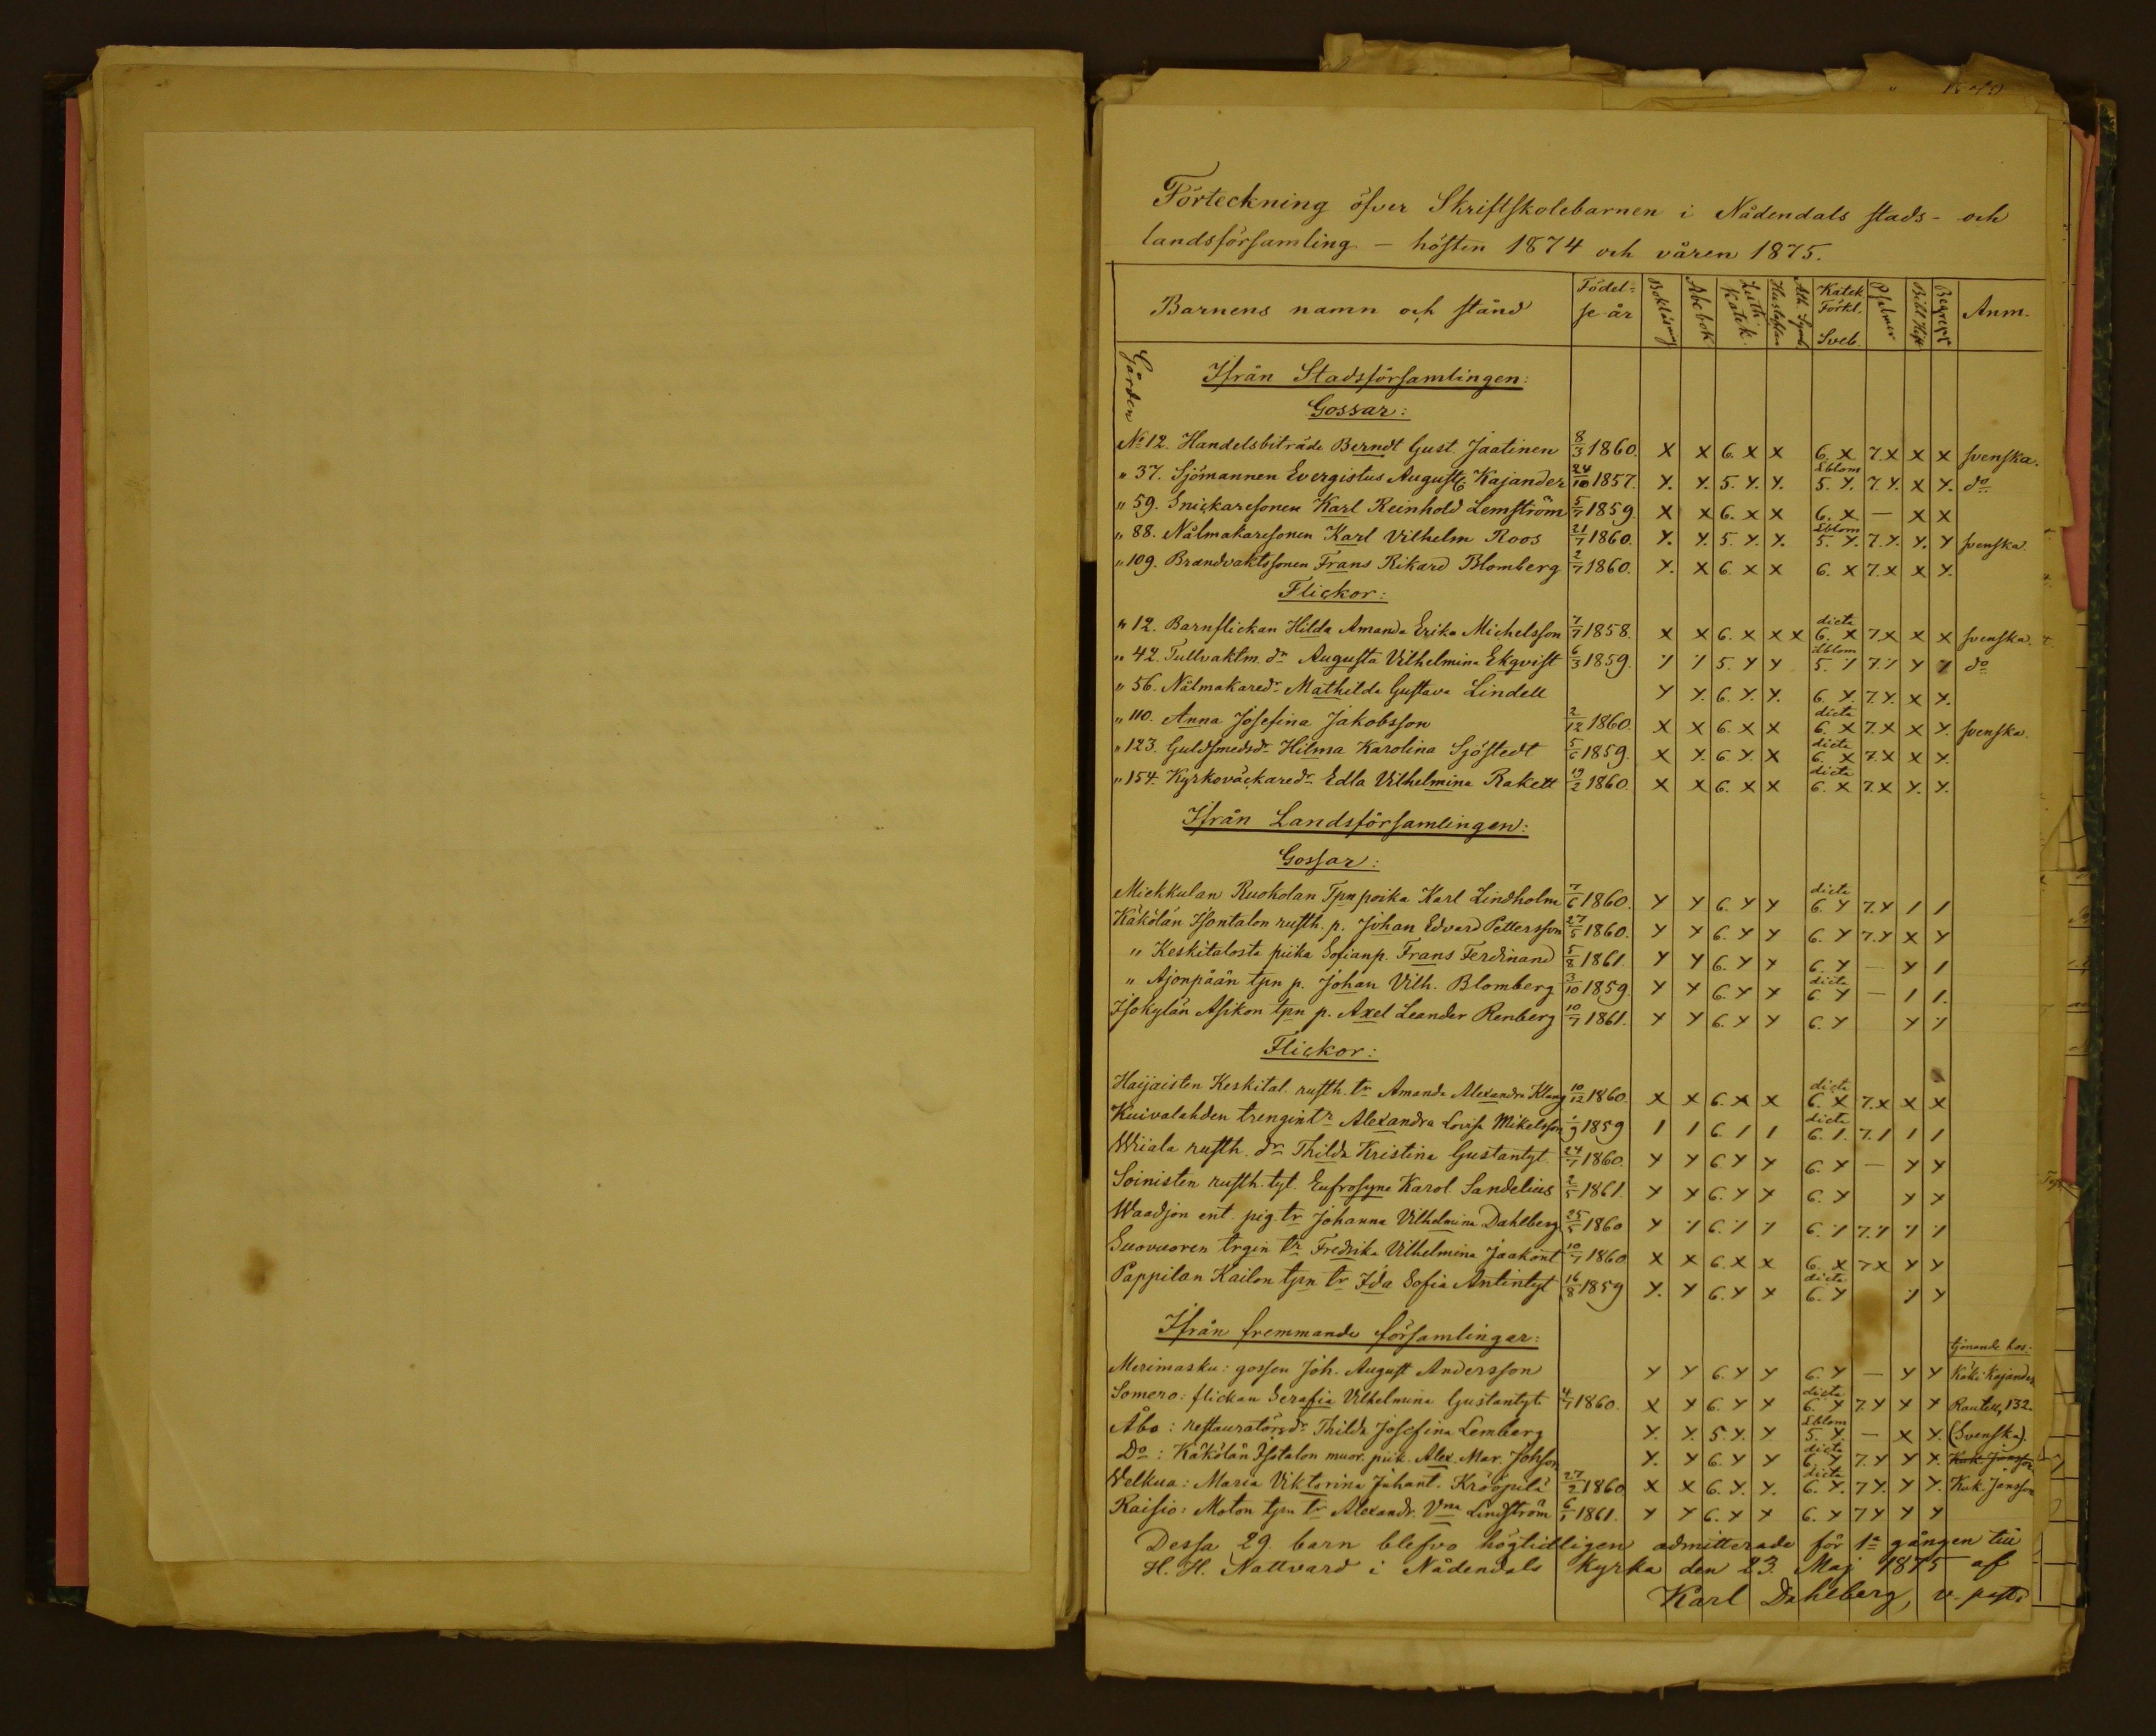 Förteckning öfver Skriftskolebarnen i Nådendals stads- och
landsförsamling - hösten 1874 och våren 1875.
Gården Barnens namn och stånd Födelse-år Bokläsning Abcbok Luth. Katek. Hustaflan Ath. Symb. Katek. Förkl. Sveb. Psalmer Bibl. Hist. Begrepp Anm.
Ifrån Stadsförsamlingen:
Gossar:
No 12. Handelsbiträde Berndt Gust. Jaatinen 8/3 1860. x x 6. x x 6. x 7. x x x svenska.
" 37. Sjömannen Evergistus August Kajander 24/10 1857. Y. Y. 5. Y. Y. Lblom 5. Y. 7. Y. x Y. do
" 59. Snickaresonen Karl Reinhold Lemström 5/7 1859. x x 6. x x 6. x — x x
" 88. Nålmakaresonen Karl Vilhelm Roos 21/7 1860. Y. Y. 5. Y. Y. Lblom 5. Y. 7. Y. Y. Y svenska.
" 109. Brandvaktssonen Frans Rikard Blomberg 2/7 1860. Y. x 6. x x 6. x 7. x x Y.
Flickor:
" 12. Barnflickan Hilda Amanda Erika Michelsson 7/7 1858. x x 6. x x x dicta 6. x 7. x x x svenska.
" 42. Tullvaktm. dr Augusta Vilhelmina Ekqvist 6/3 1859. 5. Y Y Lblom 5. 7. Y do
" 56. Nålmakaredr Mathilda Gustava Lindell Y Y. 6. Y. Y. 6. Y. 7. Y. x Y.
" 110. Anna Josefina Jakobsson 2/12 1860. x x 6. x x dicta 6. x 7. x x Y. svenska.
" 123. Guldsmedsdr Hilma Karolina Sjöstedt 5/6 1859. x Y. 6. Y. x dicta 6. x 7. x x Y.
" 154. Kyrkoväckaredr Edla Vilhelmina Rakett 19/2 1860. x x 6. x x dicta 6. x 7. x Y. Y.
Ifrån Landsförsamlingen:
Gossar:
Miekkulan Ruokolan Tpn poika Karl Lindholm 7/6 1860. Y Y 6. Y Y dicta 6. Y 7. Y 1 1
Käkölän Isontalon rusth. p. Johan Edvard Pettersson 27/5 1860. Y Y 6. Y Y 6. Y 7. Y x Y
" Keskitalosta piika Sofianp. Frans Ferdinand 5/8 1861. Y Y 6. Y Y 6. Y — Y 1
" Ajonpään tpn p. Johan Vilh. Blomberg 3/10 1859. Y Y 6. Y Y dicta 6. Y — 1 1.
Isokylän Asikon tpn p. Axel Leander Renberg 10/7 1861. Y Y 6. Y Y 6. Y Y
Flickor:
Haijaisten Keskital. rusth. tr Amanda Alexandra Klang 10/12 1860. x x 6. x x dicta 6. x 7. x x x
Kuivalahden trengin tr Alexandra Lovisa Mikelsson 1/9 1859 1 1 6. 1 1 dicta 6. 1. 7. 1 1 1
Wiiala rusth. dr Thilda Kristina Gustantyt. 24/7 1860. Y Y 6. Y Y 6. Y — Y Y
Soinisten rusth. tyt. Eufrosyne Karol. Sandelius 2/5 1861. Y Y 6. Y Y 6. Y Y Y
Waadjon ent. pig. tr Johanna Vilhelmina Dahlberg 25/5 1860 Y 6. 6. 7.
Suovuoren trgin tr Fredrika Vilhelmina Jaakont 10/7 1860. x x 6. x x 6. x 7 x Y Y
Pappilan Kailon tpn tr Ida Sofia Antintyt 16/8 1859 Y. Y 6. Y Y dicta 6. Y Y
Ifrån fremmande församlingar:
tjenande hos:
Merimasku: gossen Joh. August Andersson Y Y 6. Y Y 6. Y — Y Y Käkö. Kajander
Somero: flickan Serafia Vilhelmina Gustantyt. 4/7 1860. x Y 6. Y Y dicta 6. Y 7. Y Y Y Rautell, 132.
Åbo: restauratörsdr Thilda Josefina Lemberg Y. Y. 5. Y. Y Lblom 5. Y. — x Y. (Svenska).
Do: Käkölän Isstalon muor. piik. Alex. Mar. Johsson Y. Y 6. Y Y dicta 6. Y 7. Y Y Y. Kuk. Jansson
Welkua: Maria Viktorina Juhant. Kroopilä 27/2 1860 x x 6. Y. Y. dicta 6. Y. 7 Y. Y Y. Kuk. Jansson
Raisio: Moton tpn tr Alexandr. Vna Lindström 6/1 1861. Y Y 6. Y Y 6. Y 7 Y Y Y
Dessa 29 barn blefvo högtidligen admitterade för 1a gången till
H. H. Nattvard i Nådendals kyrka den 23. Maj 1875 af
Karl Dahlberg, v. past.